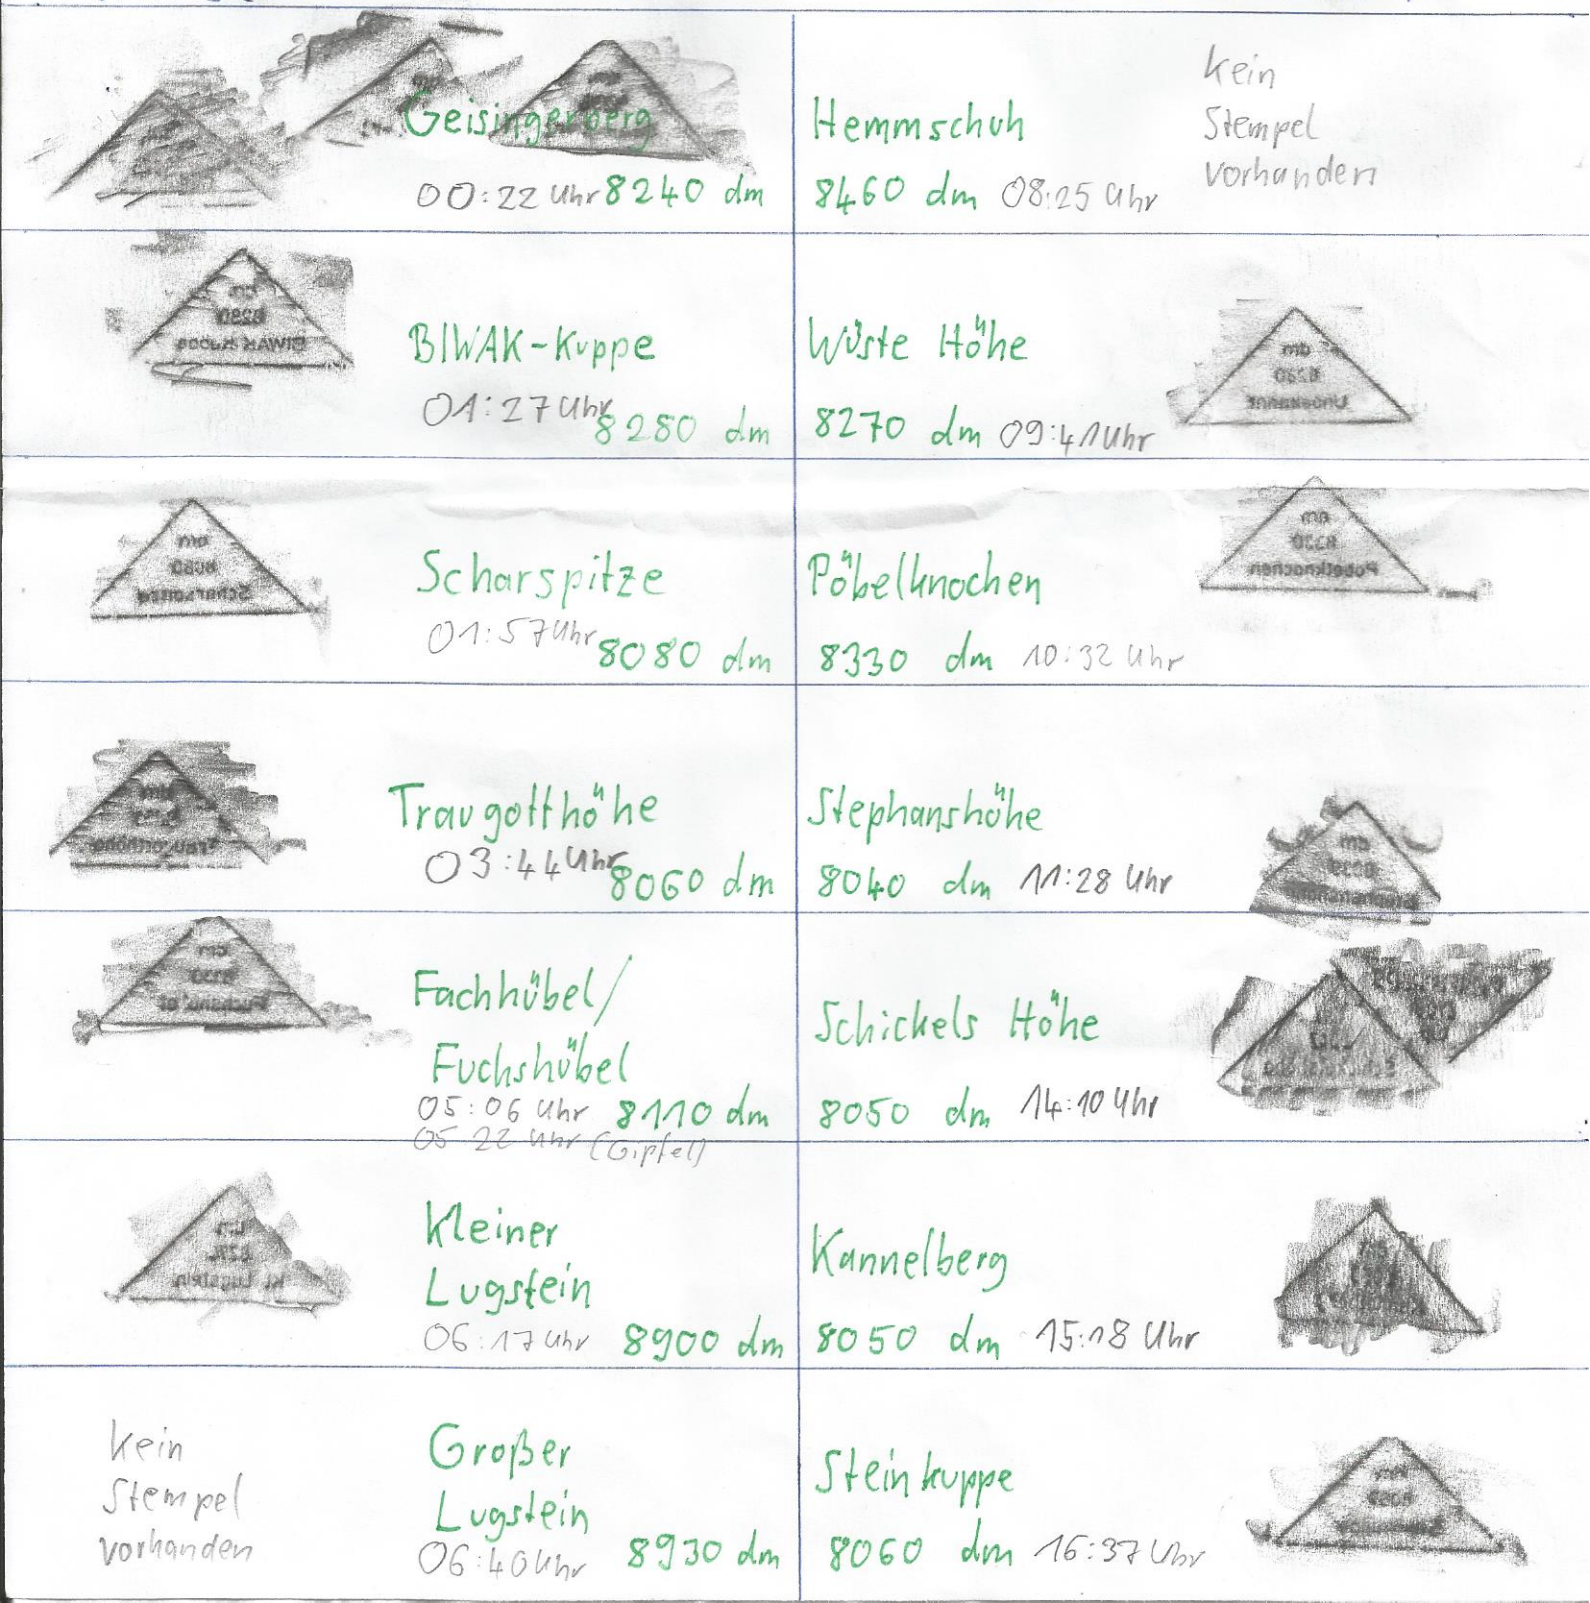 Geisingerberg
00:22 Uhr 8240 dm
BIWAK-Kuppe
01:27 Uhr
8280 dm
Scharspitze
01:57 Uhr 8080 dm
Traugotthöhe
03:44 Uhr
8060 dm
Fachhübel/
Fuchshübel
05:06 Uhr 8110 dm
05 22 Uhr (Gipfel)
Kleiner
Lugstein
06:17 Uhr 8900 dm
kein
Stempel
vorhanden
Großer
Lugstein
06:40 Uhr 8930 dm
Hemmschuh
8460 dm 08:25 Uhr
kein
Stempel
vorhanden
Wüste Höhe
8270 dm 09:41 Uhr
dm
Unbekannt
Pöbelknochen
8330 dm 10:32 Uhr
dm
8330
Pöbelknochen
Stephanshöhe
8040 dm 11:28 Uhr
Schickels Höhe
8050 dm 14:10 Uhr
Kannelberg
8050 dm 15:18 Uhr
Steinkuppe
8060 dm 16:37 Uhr